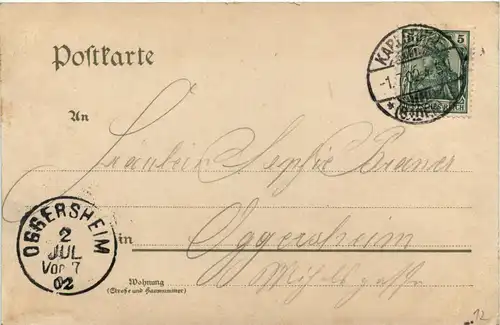 Postkarte
5
KARLSRUHE
-1.7.
An
Fräulein Sophie Bauer
OGGERSHEIM
2
JUL
Vor 7
02
in Oggersheim
Wohnung
(Straße und Hausnummer)
12